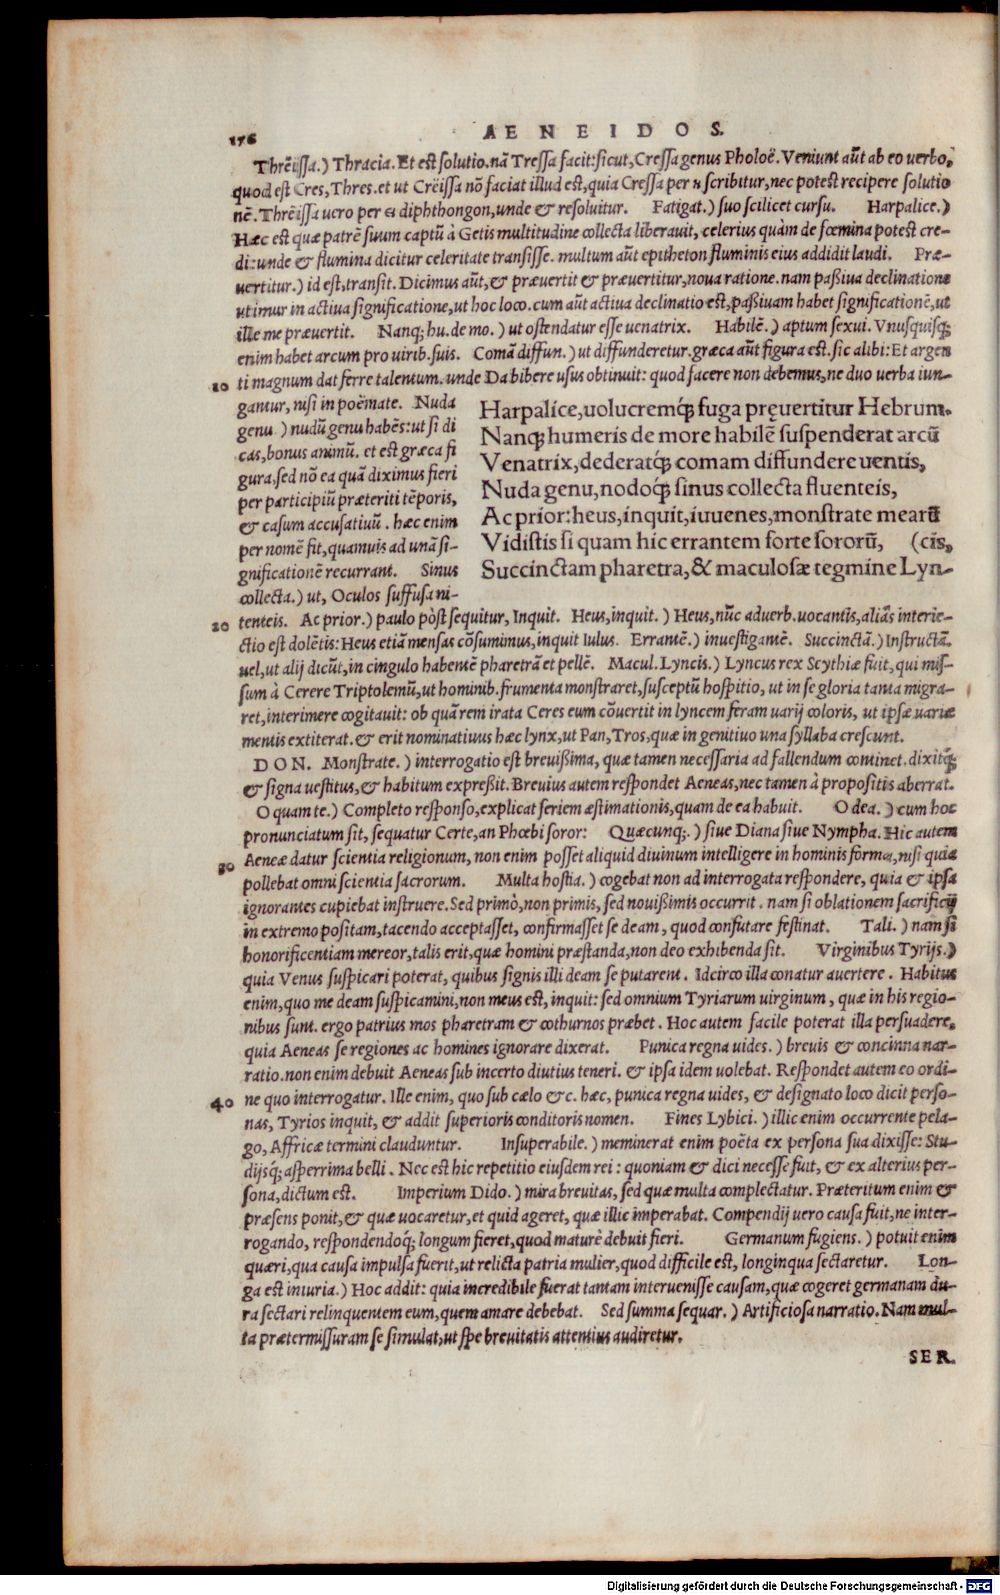 176
AENEIDOS.
Thrëissa.) Thracia. Et est solutio. nã Tressa facit: sicut, Cressa genus Pholoë. Veniunt aũt ab eo uerbo,
quod est Cres, Thres. et ut Crëissa nõ faciat illud est, quia Cressa per η scribitur, nec potest recipere solutio
nẽ. Thrëissa uero per ει diphthongon, unde & resoluitur. Fatigat.) suo scilicet cursu. Harpalice.)
Hæc est quæ patrẽ suum captũ à Getis multitudine collecta liberauit, celerius quàm de fœmina potest cre-
di: unde & flumina dicitur celeritate transisse. multum aũt epitheton fluminis eius addidit laudi. Præ-
uertitur.) id est, transit. Dicimus aũt, & præuertit & præuertitur, noua ratione. nam paßiua declinatione
utimur in actiua significatione, ut hoc loco. cum aũt actiua declinatio est, paßiuam habet significationẽ, ut
ille me præuertit. Nanq; hu. de mo.) ut ostendatur esse uenatrix. Habilẽ.) aptum sexui. Vnusquisq;
enim habet arcum pro uirib. suis. Comã diffun.) ut diffunderetur. græca aũt figura est. sic alibi: Et argen
10 ti magnum dat ferre talentum. unde Da bibere usus obtinuit: quod facere non debemus, ne duo uerba iun-
gantur, nisi in poëmate. Nuda
genu.) nudũ genu habẽs: ut si di
cas, bonus animũ. et est græca fi
gura. sed nõ ea quã diximus fieri
per participiũ præteriti tẽporis,
& casum accusatiuũ. hæc enim
per nomẽ fit, quamuis ad unã si-
gnificationẽ recurrant. Sinus
collecta.) ut, Oculos suffusa ni-
Harpalice, uolucremq́; fuga pręuertitur Hebrum.
Nanq; humeris de more habilẽ suspenderat arcũ
Venatrix, dederatq́; comam diffundere uentis,
Nuda genu, nodoq́; sinus collecta fluenteis,
Ac prior: heus, inquit, iuuenes, monstrate mearũ
Vidistis si quam hic errantem forte sororũ, (cis,
Succinctam pharetra, & maculosæ tegmine Lyn-
20 tenteis. Ac prior.) paulo pòst sequitur, Inquit. Heus, inquit.) Heus, nũc aduerb. uocantis, aliàs interie-
ctio est dolẽtis: Heus etiã mensas cõsumimus, inquit Iulus. Errantẽ.) inuestigantẽ. Succinctã.) Instructã.
uel, ut alij dicũt, in cingulo habentẽ pharetrã et pellẽ. Macul. Lyncis.) Lyncus rex Scythiæ fuit, qui mis-
sum à Cerere Triptolemũ, ut hominib. frumenta monstraret, susceptũ hospitio, ut in se gloria tanta migra-
ret, interimere cogitauit: ob quã rem irata Ceres eum cõuertit in lyncem feram uarij coloris, ut ipse uariæ
mentis extiterat. & erit nominatiuus hæc lynx, ut Pan, Tros, quæ in genitiuo una syllaba crescunt.
DON. Monstrate.) interrogatio est breuißima, quæ tamen necessaria ad fallendum continet. dixitq́;
& signa uestitus, & habitum expreßit. Breuius autem respondet Aeneas, nec tamen à propositis aberrat.
O quam te.) Completo responso, explicat seriem æstimationis, quam de ea habuit. O dea.) cum hoc
pronunciatum sit, sequatur Certe, an Phœbi soror: Quæcunq;.) siue Diana siue Nympha. Hic autem
30 Aeneæ datur scientia religionum, non enim posset aliquid diuinum intelligere in hominis forma, nisi quia
pollebat omni scientia sacrorum. Multa hostia.) cogebat non ad interrogata respondere, quia & ipsa
ignorantes cupiebat instruere. Sed primò, non primis, sed nouißimis occurrit. nam si oblationem sacrificij
in extremo positam, tacendo acceptasset, confirmasset se deam, quod confutare festinat. Tali.) nam si
honorificentiam mereor, talis erit, quæ homini præstanda, non deo exhibenda sit. Virginibus Tyrijs.)
quia Venus suspicari poterat, quibus signis illi deam se putarent. Idcirco illa conatur auertere. Habitus
enim, quo me deam suspicamini, non meus est, inquit: sed omnium Tyriarum uirginum, quæ in his regio-
nibus sunt. ergo patrius mos pharetram & cothurnos præbet. Hoc autem facile poterat illa persuadere,
quia Aeneas se regiones ac homines ignorare dixerat. Punica regna uides.) breuis & concinna nar-
ratio. non enim debuit Aeneas sub incerto diutius teneri. & ipsa idem uolebat. Respondet autem eo ordi-
40 ne quo interrogatur. Ille enim, quo sub cælo &c. hæc, punica regna uides, & designato loco dicit perso-
nas, Tyrios inquit, & addit superioris conditoris nomen. Fines Lybici.) illic enim occurrente pela-
go, Affricæ termini clauduntur. Insuperabile.) meminerat enim poëta ex persona sua dixisse: Stu-
dijsq́; asperrima belli. Nec est hic repetitio eiusdem rei: quoniam & dici necesse fuit, & ex alterius per-
sona, dictum est. Imperium Dido.) mira breuitas, sed quæ multa complectatur. Præteritum enim &
præsens ponit, & quæ uocaretur, et quid ageret, quæ illic imperabat. Compendij uero causa fuit, ne inter-
rogando, respondendoq́; longum fieret, quod maturè debuit fieri. Germanum fugiens.) potuit enim
quæri, qua causa impulsa fuerit, ut relicta patria mulier, quod difficile est, longinqua sectaretur. Lon-
ga est iniuria.) Hoc addit: quia incredibile fuerat tantam interuenisse causam, quæ cogeret germanam du-
ra sectari relinquentem eum, quem amare debebat. Sed summa sequar.) Artificiosa narratio. Nam mul-
ta prætermissuram se simulat, ut spe breuitatis attentius audiretur.
SER.
Digitalisierung gefördert durch die Deutsche Forschungsgemeinschaft - DFG